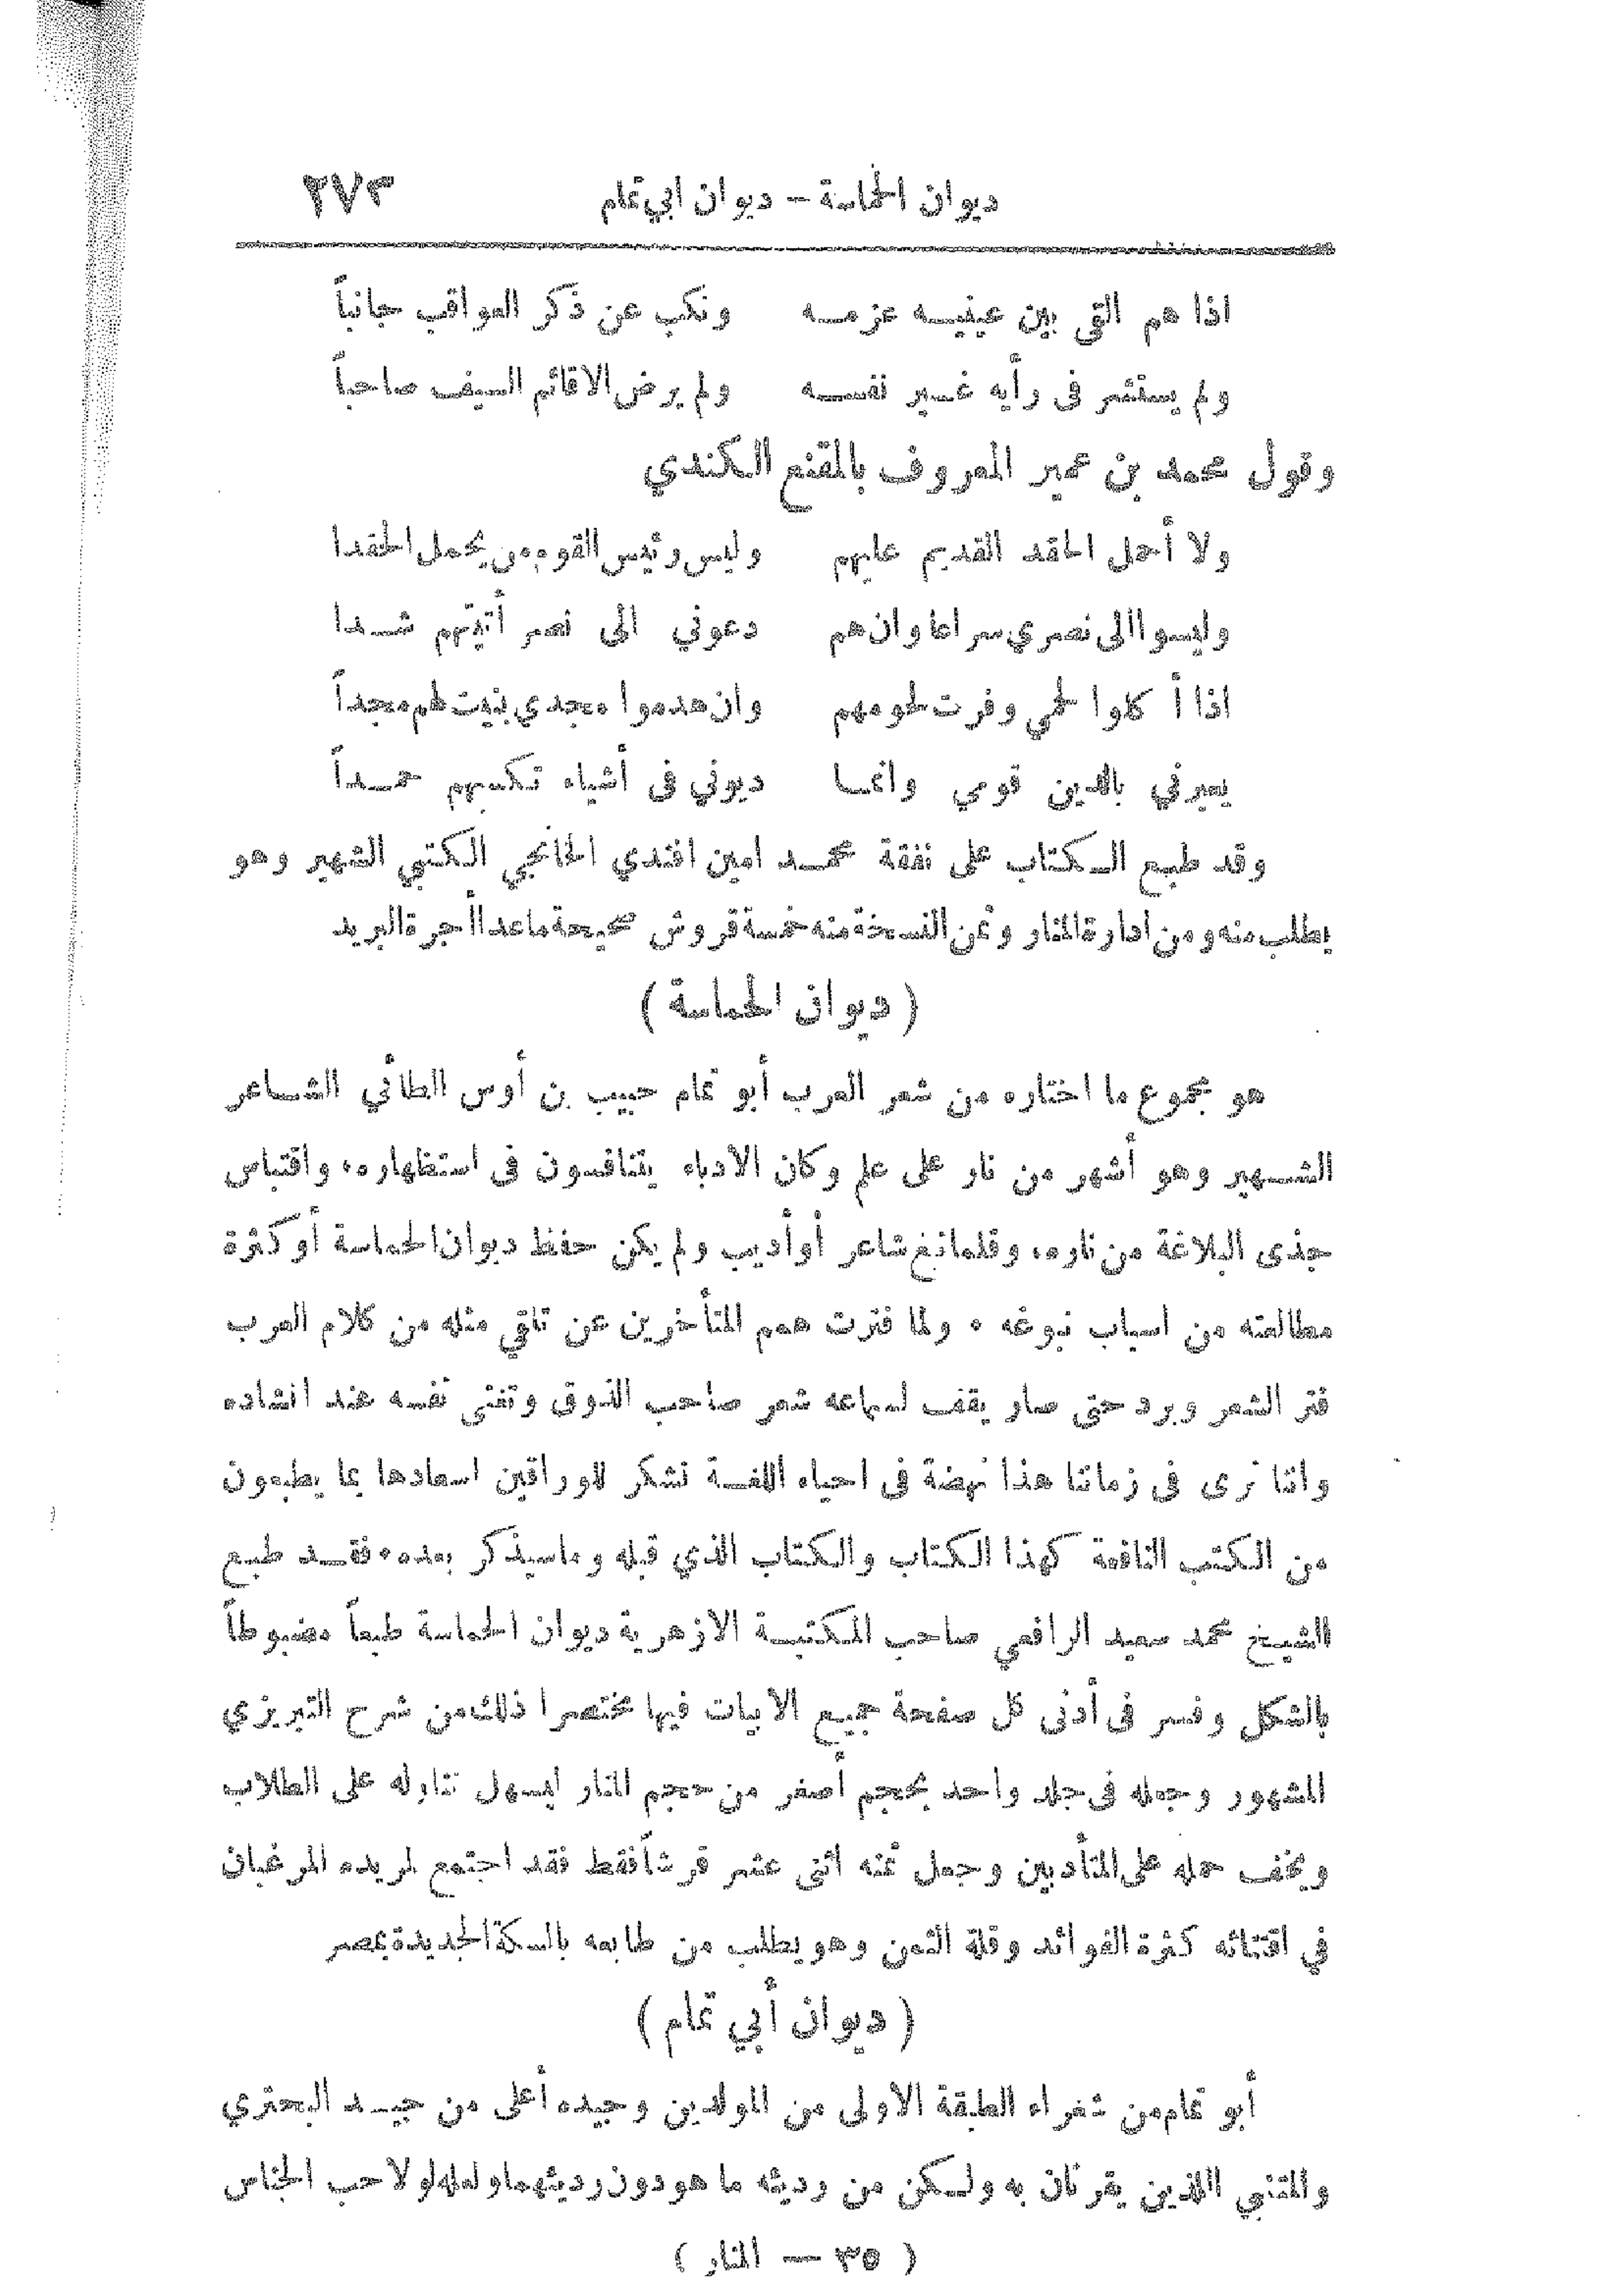 ديوان الحماسة – ديوان ابي تمام ٢٧٣
اذا هم القى بين عينيـه عزمـه ونكب عن ذكر العواقب جانباً
ولم يستشر في رأيه غـير نفسـه ولم يرض الا قائم السيف صاحباً
وقول محمد بن عمير المعروف بالمقنع الكندي
ولا أحمل الحقد القديم عليهم وليس رئيس القوم من يحمل الحقدا
وليسوا الى نصري سراعا وان هم دعوني الى نصر أتيتهم شـدا
اذا أكلوا لحمي وفرت لحومهم وان هدموا مجدي بنيت لهم مجداً
يعيرني بالدين قومي وانمـا ديوني في أشياء تكسبهم حمـداً
وقد طبـع الـكتاب على نفقة محمـد امين افندي الخانجي الكتبي الشهير وهو
يطلب منه ومن ادارة المنار وثمن النسخة منه خمسة قروش صحيحة ماعدا أجرة البريد
( ديوان الحماسة )
هو مجموع ما اختاره من شعر العرب أبو تمام حبيب بن أوس الطائي الشـاعر
الشـهير وهو أشهر من نار على علم وكان الادباء يتنافسون في استظهاره، واقتباس
جذى البلاغة من ناره، وقلما نبغ شاعر أو أديب ولم يكن حفظ ديوان الحماسة أو كثرة
مطالعته من اسباب نبوغه . ولما فترت همم المتأخرين عن تلقي مثله من كلام العرب
فتر الشعر وبرد حتى صار يقف لسماعه شعر صاحب الذوق وتغثى نفسه عند انشاده
واننا نرى في زماننا هذا نهضة في احياء اللغـة نشكر للوراقين اسعادها بما يطبعون
من الكتب النافعة كهذا الكتاب والكتاب الذي قبله وماسيذكر بعده. فقـد طبـع
الشيخ محمد سعيد الرافعي صاحب المكتبـة الازهرية ديوان الحماسة طبعاً مضبوطاً
بالشكل وفسر في أدنى كل صفحة جميع الابيات فيها مختصرا ذلك من شرح التبريزي
المشهور وجعله في جلد واحد بحجم أصغر من حجم المنار ليسهل تناوله على الطلاب
ويخف حمله على المتأدبين وجعل ثمنه اثنى عشر قرشاً فقط فقد اجتمع لمريده المرغبان
في اقتنائه كثرة الفوائد وقلة الثمن وهو يطلب من طابعه بالسكة الجديدة بمصر
( ديوان أبي تمام )
أبو تمام من شعراء الطبقة الاولى من المولدين وجيده أعلى من جيـد البحتري
والمتنبي اللذين يقرنان به ولـكن من رديئه ما هو دون رديئهما ولعله لولا حب الجناس
( ٣٥ — المنار )